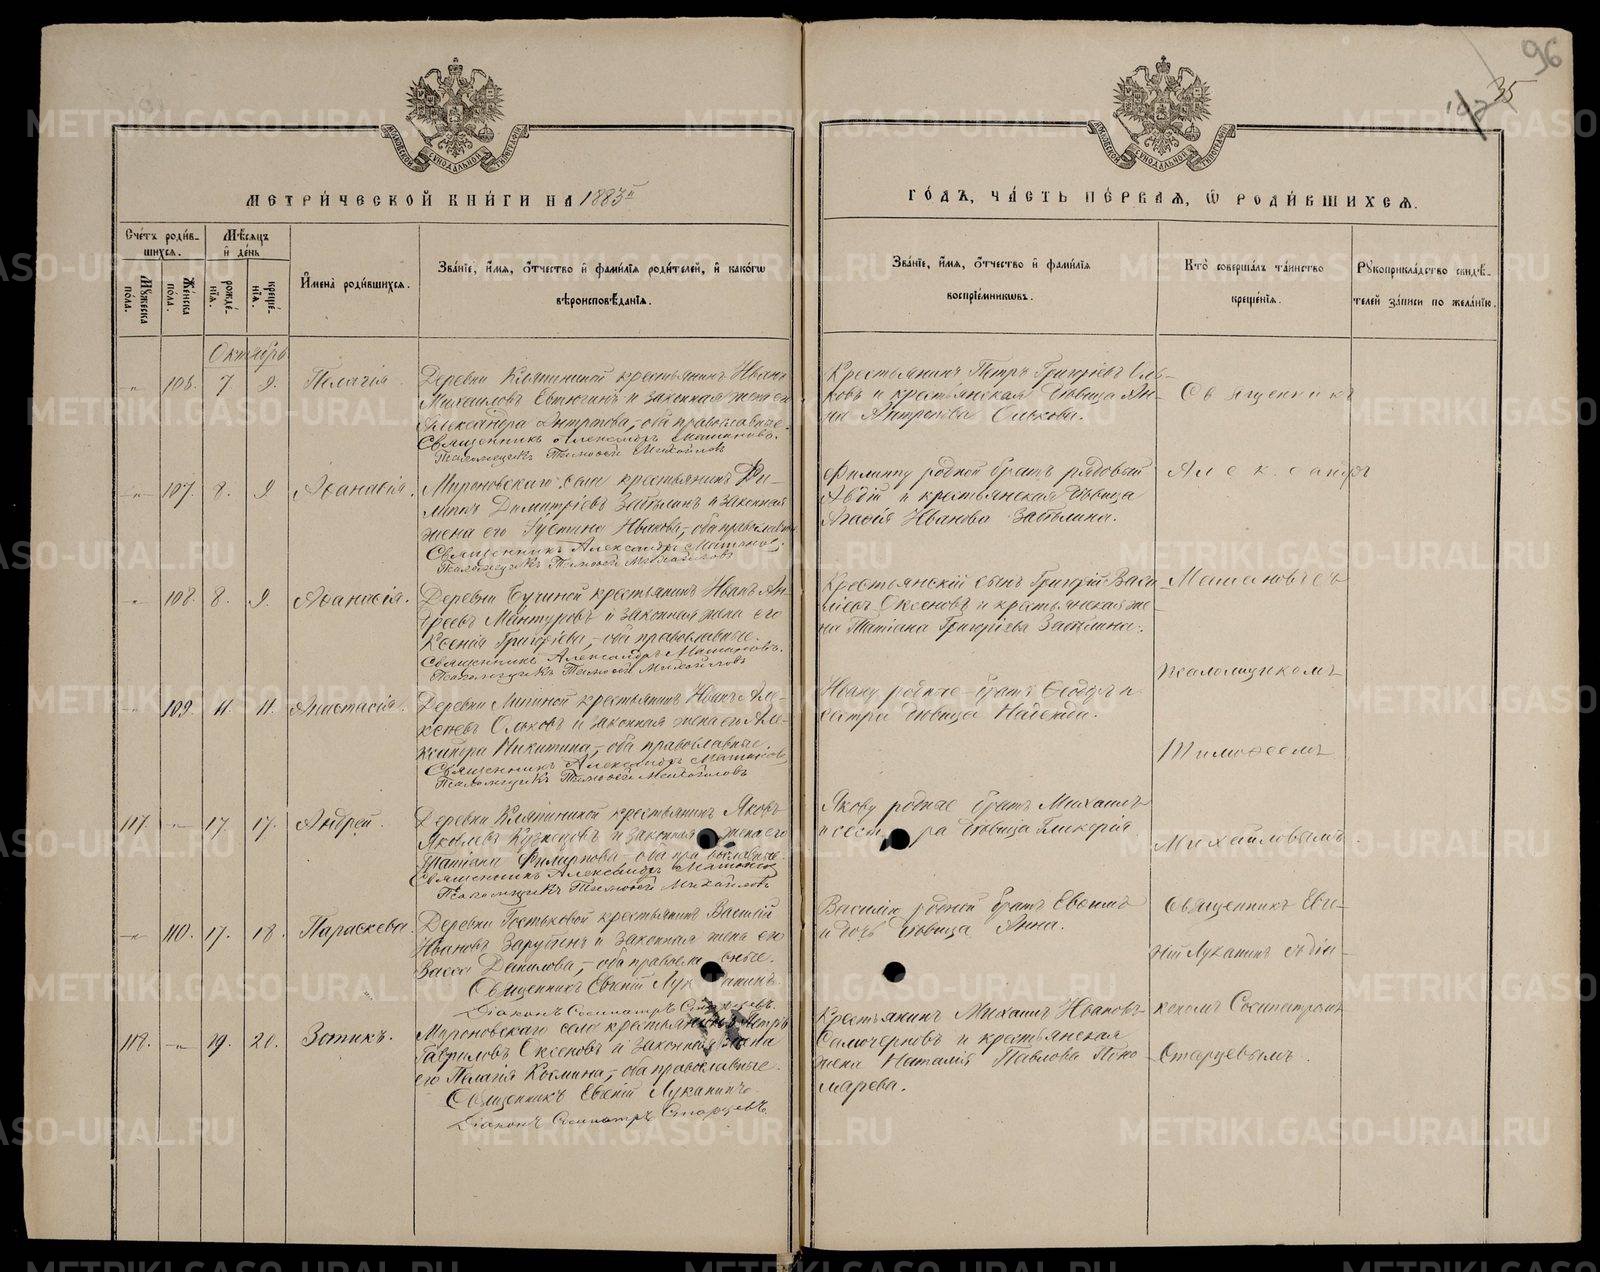 96
35
МОСКОВСКОЙ СѴНОДАЛЬНОЙ ТИПОГРАФІИ
МОСКОВСКОЙ СѴНОДАЛЬНОЙ ТИПОГРАФІИ
МЕТРИ́ЧЕСКОЙ КНИ́ГИ НА 1883й
ГО́ДЪ, ЧА́СТЬ ПЕ́РВАѦ, Ѡ РОДИ́ВШИХСѦ.
Сче́тъ роди́в-
шихсѧ.
Мꙋ́жеска по́ла.
Же́нска по́ла.
Мѣ́сѧцъ
и҆ де́нь
рожде́-
нїѧ.
креще́-
нїѧ.
И҆мена̀ роди́вшихсѧ.
Зва́нїе, и҆́мѧ, ѻ҆́тчество и҆ фами́лїѧ роди́телей, и҆ како́гѡ
вѣроисповѣ́данїѧ.
Зва́нїе, и҆́мѧ, ѻ҆́тчество и҆ фами́лїѧ
воспрїе́мникѡвъ.
Кто̀ соверша́лъ та́инство
креще́нїѧ.
Рꙋкоприкла́дство свидѣ́-
телей за́писи по жела́нїю.
Октябрь
„ 106. 7. 9. Пелагія.
Деревни Кляпининой крестьянинъ Иванъ
Михеиловъ Евтюгинъ и законная жена его
Александра Антропова,- оба православные.
Священникъ Александръ Матановъ.
Псаломщикъ Тимофей Михайловъ
Крестьянинъ Петръ Григорьевъ Оль-
ковъ и крестьянская дѣвица Ан-
на Антропова Олькова.
Священникъ
„ 107. 8. 9. Аѳанасія.
Мироновскаго села крестьянинъ Фи-
липпъ Димитріевъ Забѣлинъ и законная
жена его Іустина Иванова,- оба православные
Священникъ Александръ Матановъ
Псаломщикъ Тимофей Михайловъ
Филиппу родной братъ рядовый
Авдій и крестьянская дѣвица
Агафія Иванова Забѣлина.
Александръ
„ 108. 8. 9. Аѳанасія.
Деревни Бучиной крестьянинъ Иванъ Ан-
дреевъ Мантуровъ и законная жена его
Ксенія Григорьева,- оба православные.
Священникъ Александръ Матановъ.
Псаломщикъ Тимофей Михайловъ
Крестьянскій сынъ Григорій Васи-
льевъ Оксеновъ и крестьянская же-
на Татіана Григорьева Забѣлина.
Матановъ съ
псаломщикомъ
„ 109. 11. 11. Анастасія.
Деревни Липиной крестьянинъ Иванъ Але-
ксѣевъ Ольковъ и законная жена его Але-
ксандра Никитина,- оба православные.
Священникъ Александръ Матановъ
Псаломщикъ Тимофей Михайловъ
Ивану родные- братъ Ѳеодулъ и
сестра дѣвица Надежда.
Тимоѳеемъ
117. „ 17. 17. Андрей.
Деревни Кляпининой крестьянинъ Яковъ
Яковлевъ Кузнецовъ и законная жена его
Татіана Филиппова- оба православные.
Священникъ Александръ Матановъ
Псаломщикъ Тимофей Михайловъ
Якову родные братъ Михаилъ
и сестра дѣвица Гликерія.
Михайловымъ.
„ 110. 17. 18. Параскева.
Деревни Гостьковой крестьянинъ Василій
Ивановъ Зарубинъ и законная жена его
Васса Данилова,- оба православные.
Священникъ Евгеній Луканинъ.
Діаконъ Сосипатръ Старцевъ.
Василію родной братъ Евфимъ
и дочь дѣвица Анна.
Священникъ Евге-
ній Луканинъ съ діа-
кономъ Сосипатромъ
Старцевымъ.
118. „ 19. 20. Зотикъ.
Мироновскаго села крестьянинъ Петръ
Гавриловъ Оксеновъ и законная жена
его Пелагія Космина,- оба православные.
Священникъ Евгеній Луканинъ.
Діаконъ Сосипатръ Старцевъ.
Крестьянинъ Михаилъ Ивановъ
Самочерновъ и крестьянская
жена Наталія Павлова Поно-
марева.
METRIKI.GASO-URAL.RU